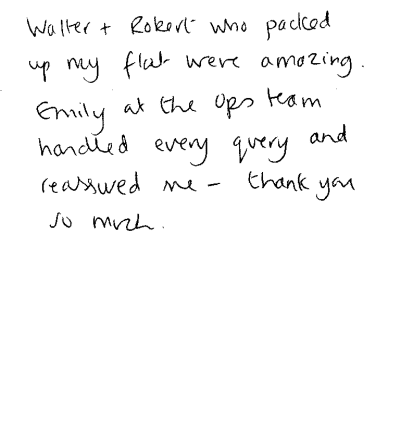 Walter + Robert who packed
up my flat were amazing.
Emily at the Ops team
handled every query and
reassured me - thank you
so much.